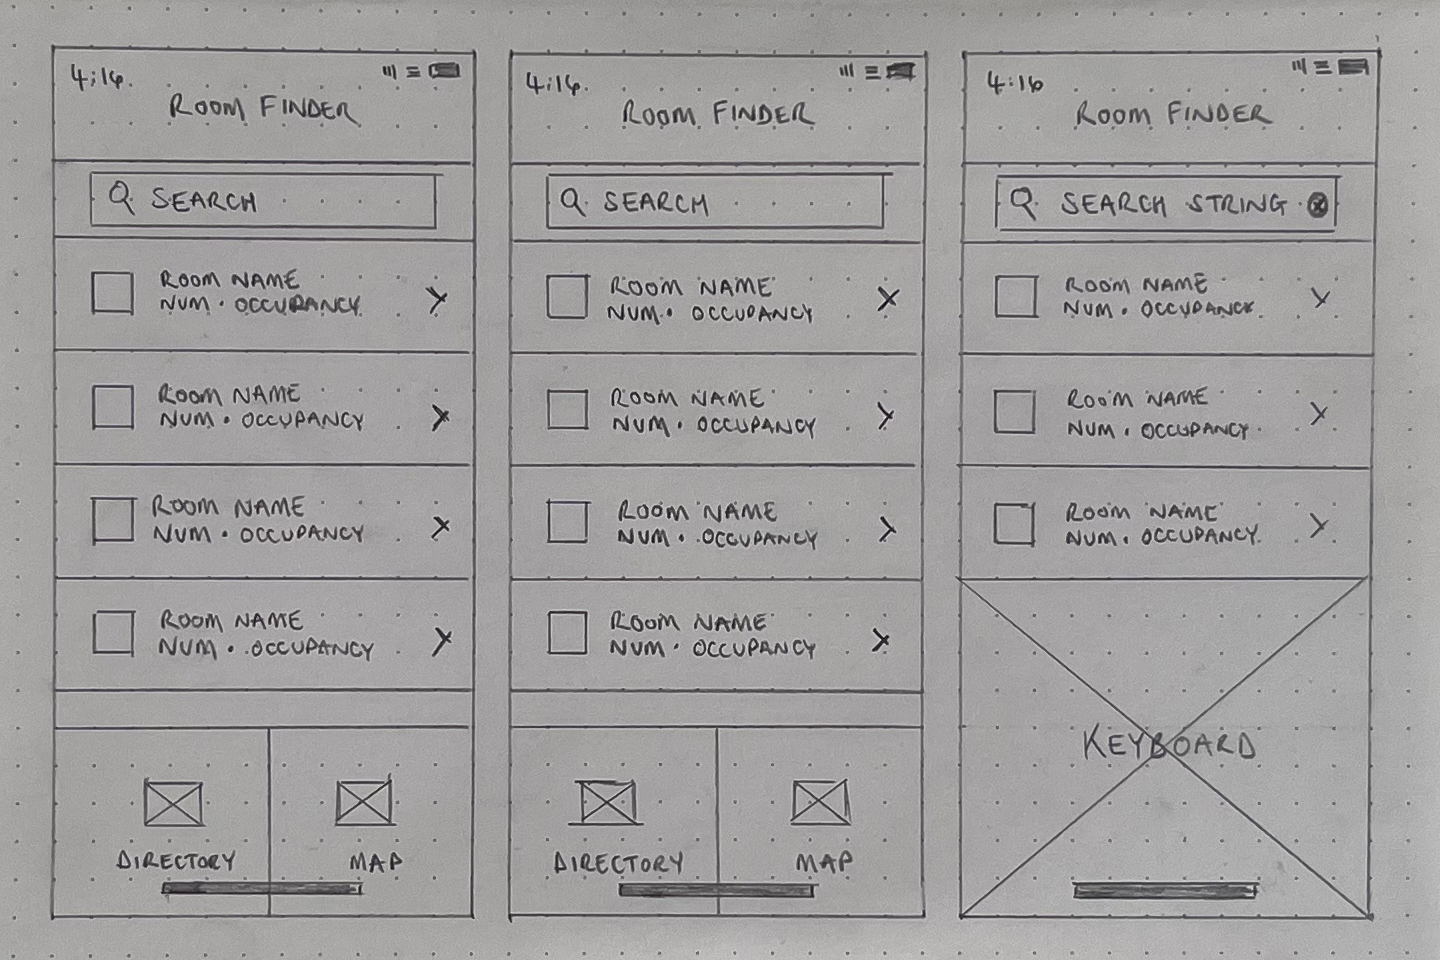 4:16
ROOM FINDER
SEARCH
ROOM NAME
NUM · OCCUPANCY
ROOM NAME
NUM · OCCUPANCY
ROOM NAME
NUM · OCCUPANCY
ROOM NAME
NUM · OCCUPANCY
DIRECTORY
MAP
4:16
ROOM FINDER
SEARCH
ROOM NAME
NUM · OCCUPANCY
ROOM NAME
NUM · OCCUPANCY
ROOM NAME
NUM · OCCUPANCY
ROOM NAME
NUM · OCCUPANCY
DIRECTORY
MAP
4:16
ROOM FINDER
SEARCH STRING
ROOM NAME
NUM · OCCUPANCY
ROOM NAME
NUM · OCCUPANCY
ROOM NAME
NUM · OCCUPANCY
KEYBOARD